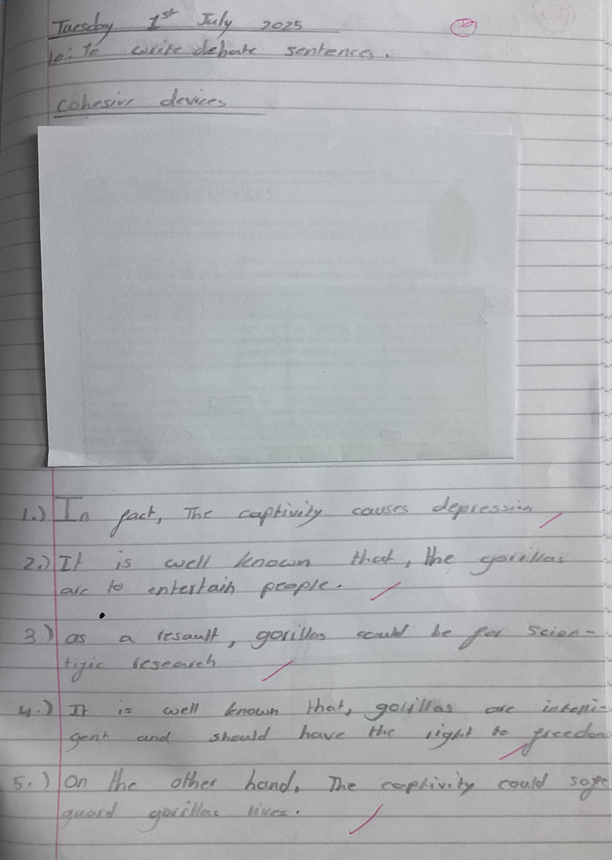 Tuesday 1st July 2025
lo: To write debate sentences.
Cohesive devices
1.) In fact, The captivity causes depression
2.) It is well known that, the gorillas
are to entertain people.
3.) as a resault, gorillas could be for scien-
tific research
4.) It is well known that, gorillas are intelli-
gent and should have the right to freedom
5.) On the other hand, The captivity could safe
guard gorillas lives.